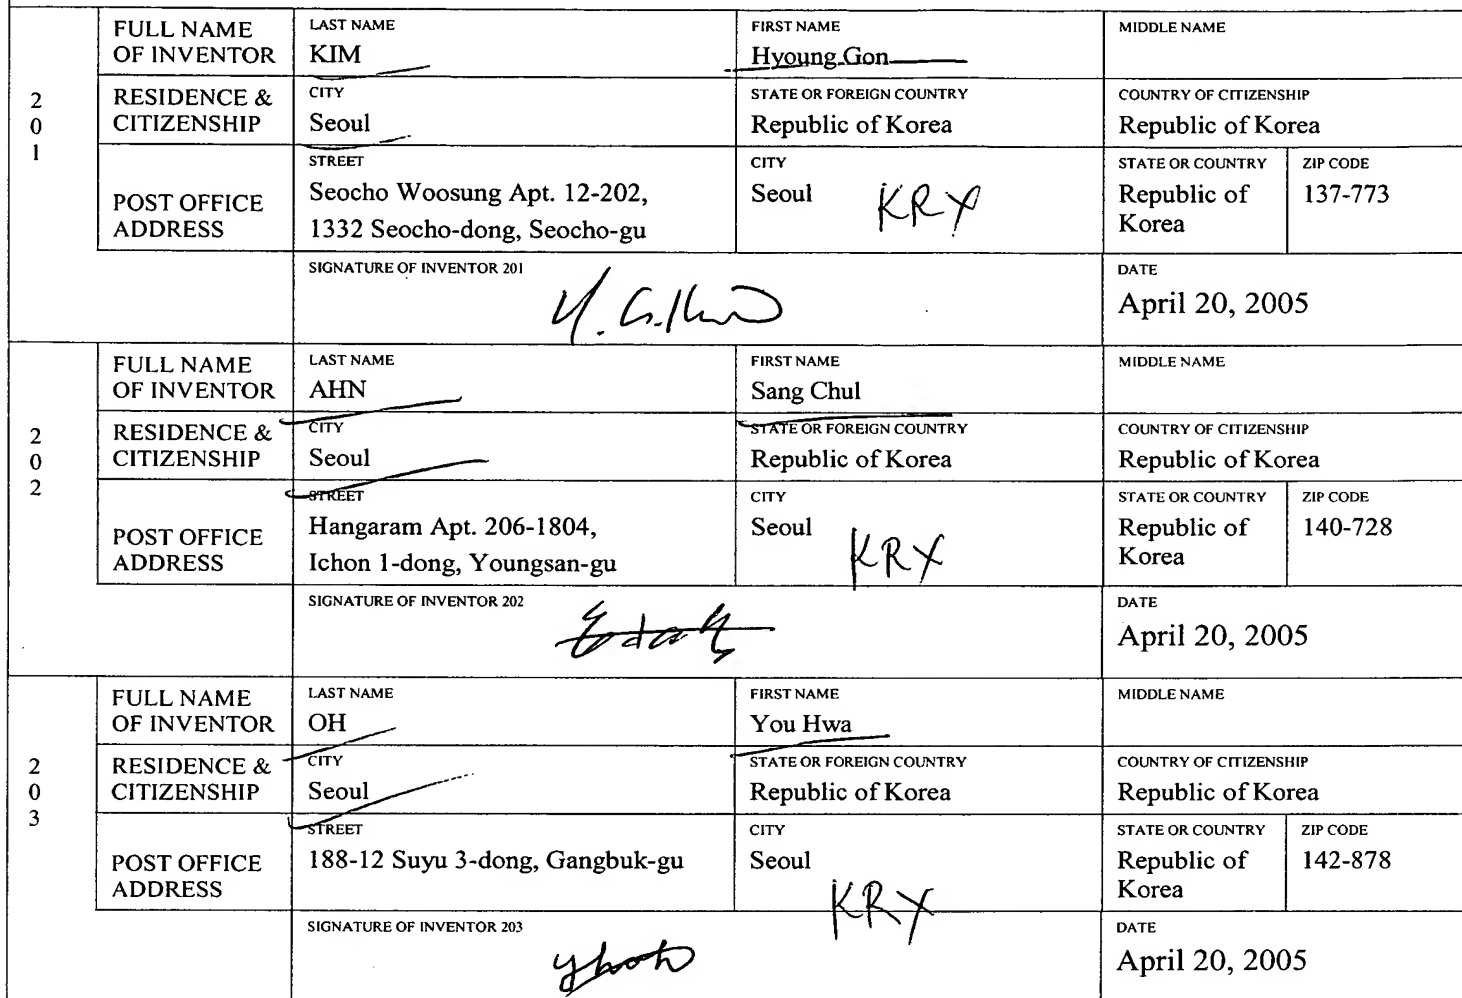 FULL NAME OF INVENTOR
LAST NAME
KIM
FIRST NAME
Hyoung Gon
MIDDLE NAME
201
RESIDENCE & CITIZENSHIP
CITY
Seoul
STATE OR FOREIGN COUNTRY
Republic of Korea
COUNTRY OF CITIZENSHIP
Republic of Korea
POST OFFICE ADDRESS
STREET
Seocho Woosung Apt. 12-202,
1332 Seocho-dong, Seocho-gu
CITY
Seoul
KRX
STATE OR COUNTRY
Republic of
Korea
ZIP CODE
137-773
SIGNATURE OF INVENTOR 201
DATE
April 20, 2005
FULL NAME OF INVENTOR
LAST NAME
AHN
FIRST NAME
Sang Chul
MIDDLE NAME
202
RESIDENCE & CITIZENSHIP
CITY
Seoul
STATE OR FOREIGN COUNTRY
Republic of Korea
COUNTRY OF CITIZENSHIP
Republic of Korea
POST OFFICE ADDRESS
STREET
Hangaram Apt. 206-1804,
Ichon 1-dong, Youngsan-gu
CITY
Seoul
KRX
STATE OR COUNTRY
Republic of
Korea
ZIP CODE
140-728
SIGNATURE OF INVENTOR 202
DATE
April 20, 2005
FULL NAME OF INVENTOR
LAST NAME
OH
FIRST NAME
You Hwa
MIDDLE NAME
203
RESIDENCE & CITIZENSHIP
CITY
Seoul
STATE OR FOREIGN COUNTRY
Republic of Korea
COUNTRY OF CITIZENSHIP
Republic of Korea
POST OFFICE ADDRESS
STREET
188-12 Suyu 3-dong, Gangbuk-gu
CITY
Seoul
KRX
STATE OR COUNTRY
Republic of
Korea
ZIP CODE
142-878
SIGNATURE OF INVENTOR 203
DATE
April 20, 2005